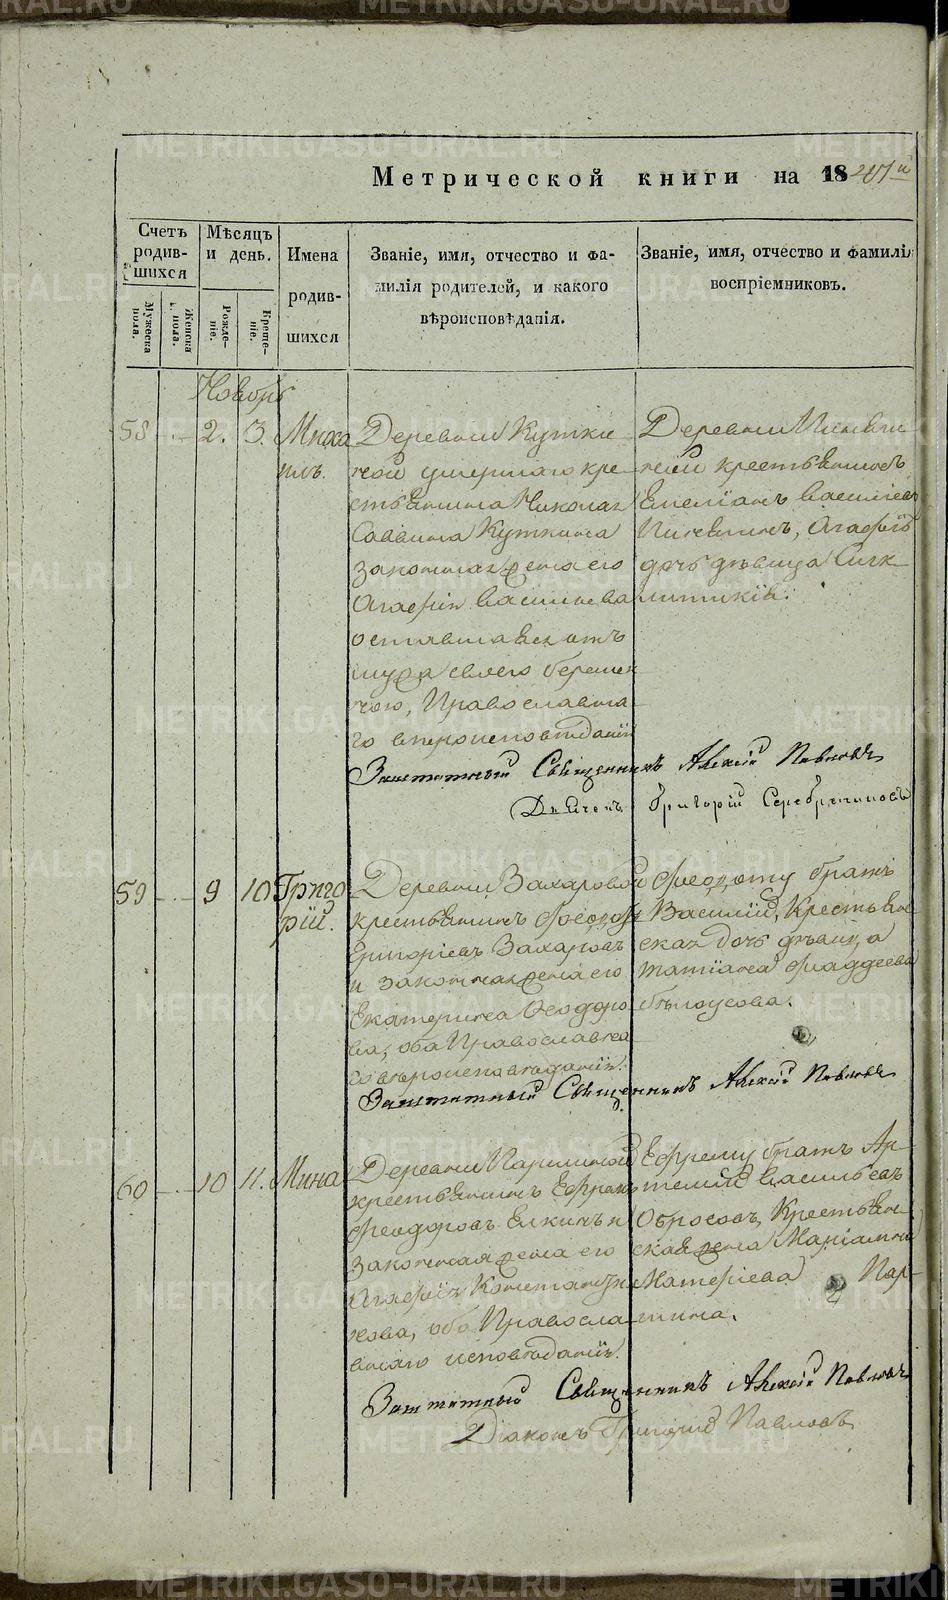 Метрической книги на 18
Счетъ родив-шихся
Мѣсяцъ и день.
Имена родив-шихся
Званіе, имя, отчество и фа-
милія родителей, и какого
вѣроисповѣданія.
Званіе, имя, отчество и фамилія
воспріемниковъ.
Мужеска пола.
Женска пола.
Рожде-ніе.
Креще-ніе.
Ноябрь
58 2. 3. Миха
илъ.
Деревни Кутки
ной умершаго кре
стьянина Николая
Саввина Куткина
законная жена его
Агафія Васильева
оставшаяся отъ
мужа своего беремен
ною, Православна
го вѣроисповѣданія
Деревни
крестьянинъ
Емеліанъ Васильевъ
Агафія
дочь дѣвица
Заштатный Священникъ Алексій Павловъ
Дьячекъ Григорій Серебрениковъ
59 9 10 Григо
рій.
Деревни Захаровой
крестьянинъ Феодотъ
Григорьевъ Захаровъ
и законная жена его
Екатерина Феодоро
ва, оба Православна
го вѣроисповѣданія.
Феодоту братъ
Василій, Крестьян
ская дочь дѣвица
Татіана Фаддеева
Бѣлоусова.
Заштатный Священникъ Алексій Павловъ
60 10 11. Мина
Деревни Паршиной
крестьянинъ Ефремъ
Феодоровъ Елкинъ и
законная жена его
Агафія Константи
нова, оба Правосла
внаго исповѣданія.
Ефрему братъ Ар-
темій Васильевъ
Обросовъ, Крестьян
ская жена Маріамна
Пар-
шина.
Заштатный Священникъ Алексій Павловъ
Діаконъ Григорій Павловъ
METRIKI.GASO-URAL.RU